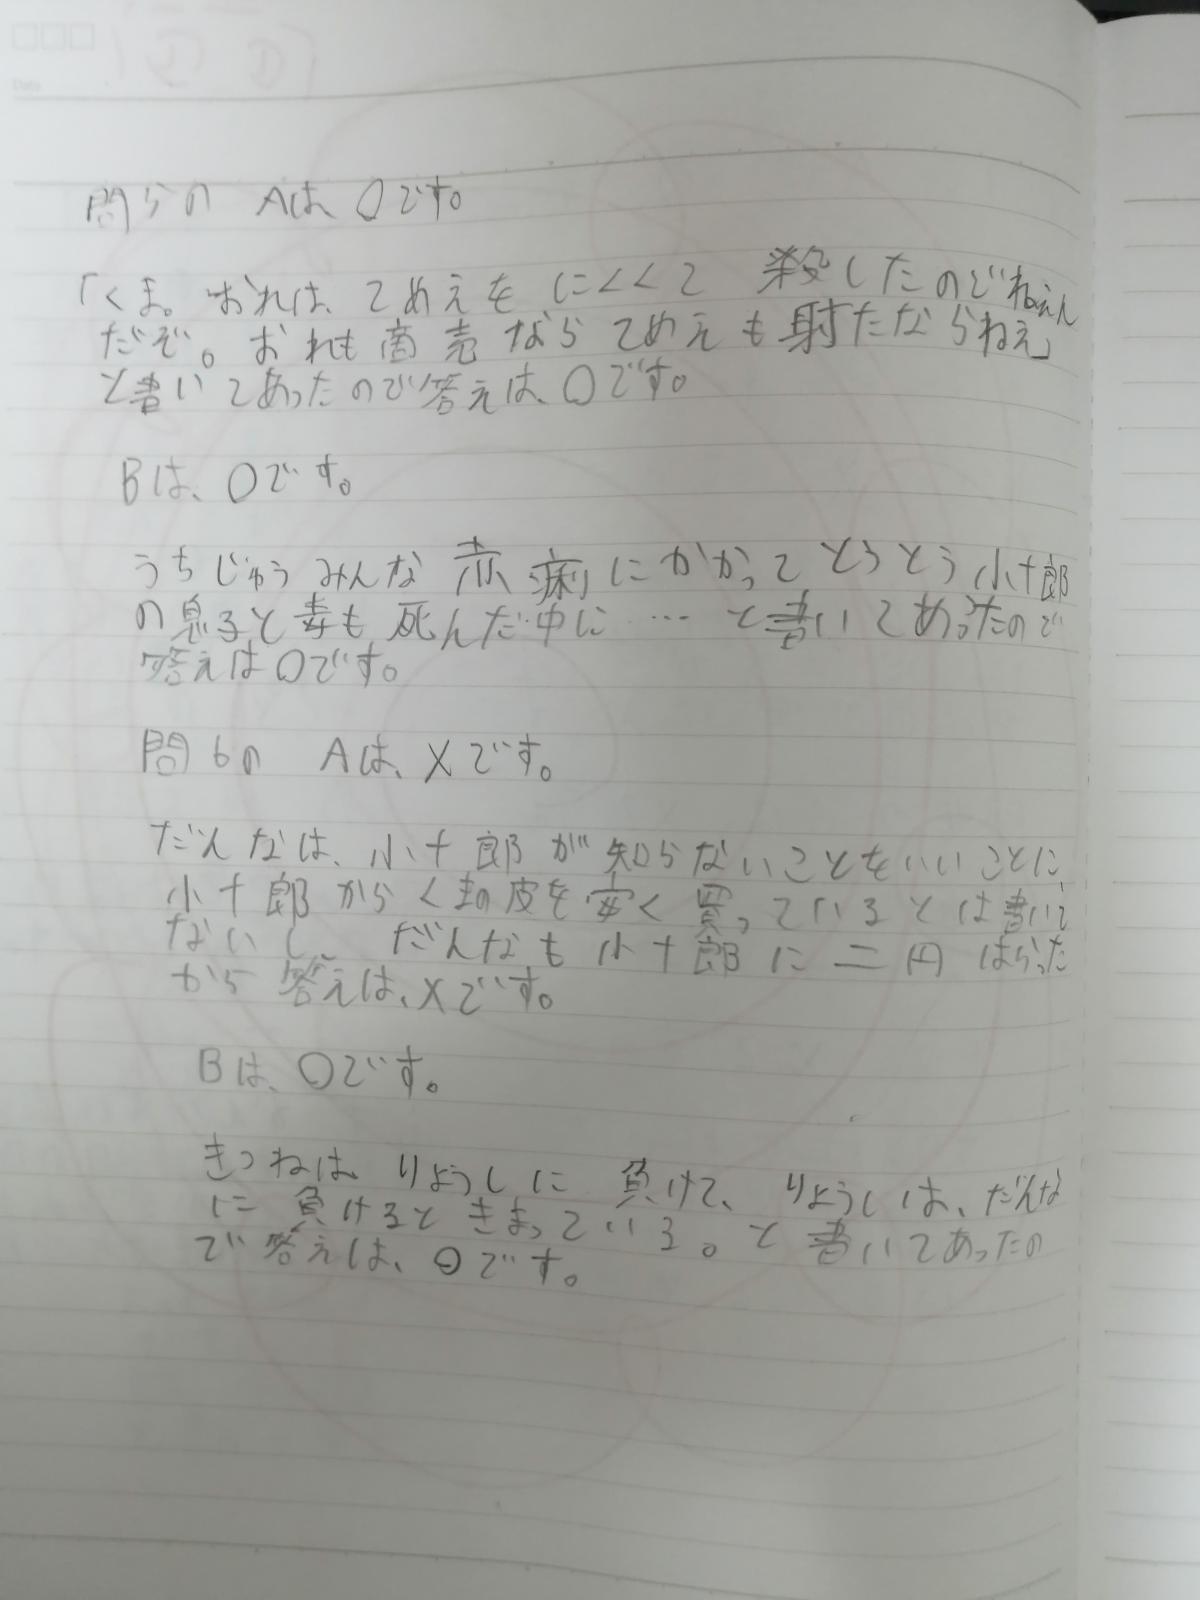 問5の Aは、○です。
「くま。おれは、てめえをにくくて 殺したのでねえん
だぞ。おれも商売ならてめえも射たならねえ」
と書いてあったので答えは、○です。
Bは、○です。
うちじゅうみんな赤痢にかかってとうとう小十郎
の息子と妻も死んだ中に…と書いてあったので
答えは○です。
問6の Aは、×です。
だんなは、小十郎が知らないことをいいことに、
小十郎からくまの皮を安く買っているとは書いて
ないし、だんなも小十郎に二円はらった
から答えは、×です。
Bは、○です。
きつねは、りょうしに負けて、りょうしは、だんな
に負けるときまっている。と書いてあったの
で答えは、○です。